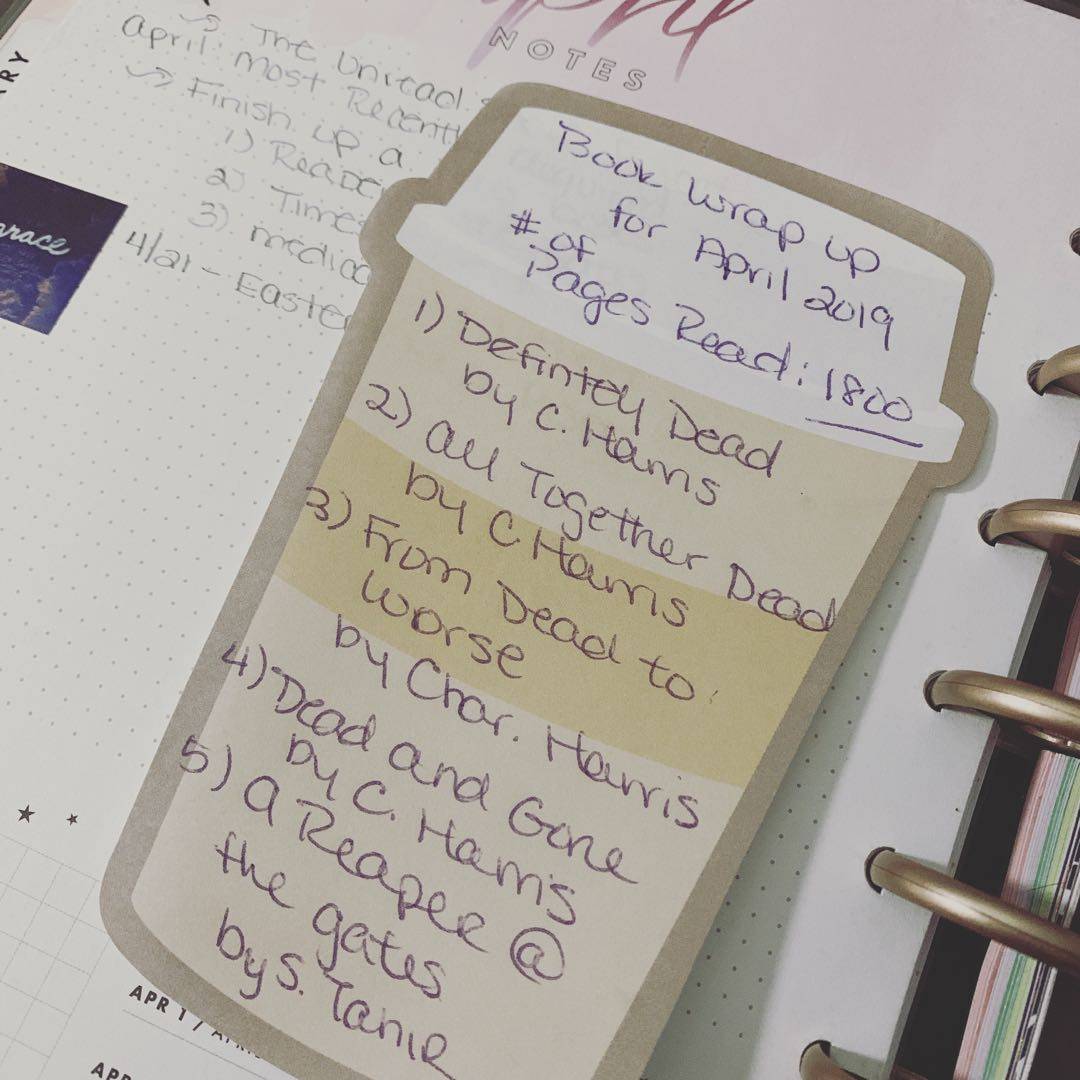 NOTES
The United
April: Most Recentl
Finish up a
1) Reade
2) Times
3) media
4/21 - Easte
Book Wrap up
for April 2019
# of
Pages Read: 1800
1) Defintely Dead
by C. Harris
2) All Together Dead
by C Harris
3) From Dead to
Worse
by Char. Harris
4) Dead and Gone
by C. Harris
5) A Reaper @
the gates
by S. Tahir
APR 1 / APR
APR